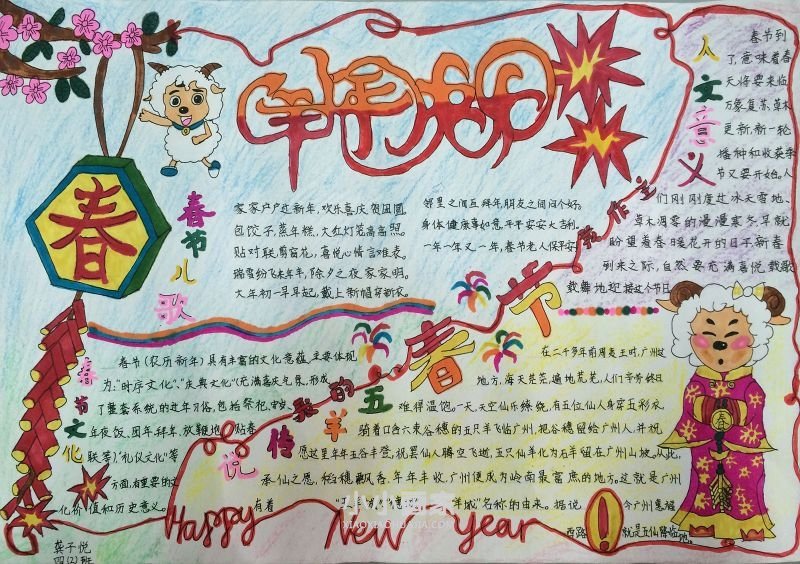 羊年春节
春
春节儿歌
家家户户过新年，欢乐喜庆贺团圆
包饺子，蒸年糕，大红灯笼高高照。
贴对联，剪窗花，喜悦心情言难表。
瑞雪纷飞来年丰，除夕之夜家家明。
大年初一早早起，戴上新帽穿新衣。
邻里之间互拜年，朋友之间问个好。
身体健康事如意，平平安安大吉利。
一年一年又一年，春节老人保平安
人文意义
春节到
了，意味着春
天将要来临
万象复苏，草木
更新，新一轮
播种和收获季
节又要开始。人
们刚刚度过冰天雪地、
草木凋零的漫漫寒冬，早就
盼望着春暖花开的日子，新春
到来之际，自然要充满喜悦载歌
载舞地迎接这个节日
春节
我作主
我的
春节文化
春节（农历新年）具有丰富的文化意蕴，主要体现
为：“时序文化”、“庆典文化”（充满喜庆气氛，形成
了一套系统的过年习俗，包括祭祀、
年夜饭、团年、拜年、放鞭炮、贴春
联等）、“礼仪文化”等
方面，有重要的文
化价值和历史意义。
五羊传说
在二千多年前周夷王时，广州这
地方，海天茫茫，遍地荒芜，人们辛劳终日
难得温饱。一天，天空仙乐缭绕，有五位仙人身穿五彩衣，
骑着口含六束谷穗的五只羊飞临广州，把谷穗留给广州人，并祝
愿这里年年五谷丰登，祝罢仙人腾空飞逝，五只仙羊化为石羊留在广州山坡。从此，
承仙之愿，稻穗飘香，年年丰收，广州便成为岭南最富庶的地方。这就是广州
有着
羊城”名称的由来。据说，
今广州惠福
西路
就是五仙降临地。
Happy New Year
小小画家
XIAOXIAOHUAJIA.CO
龚子悦
四(2)班